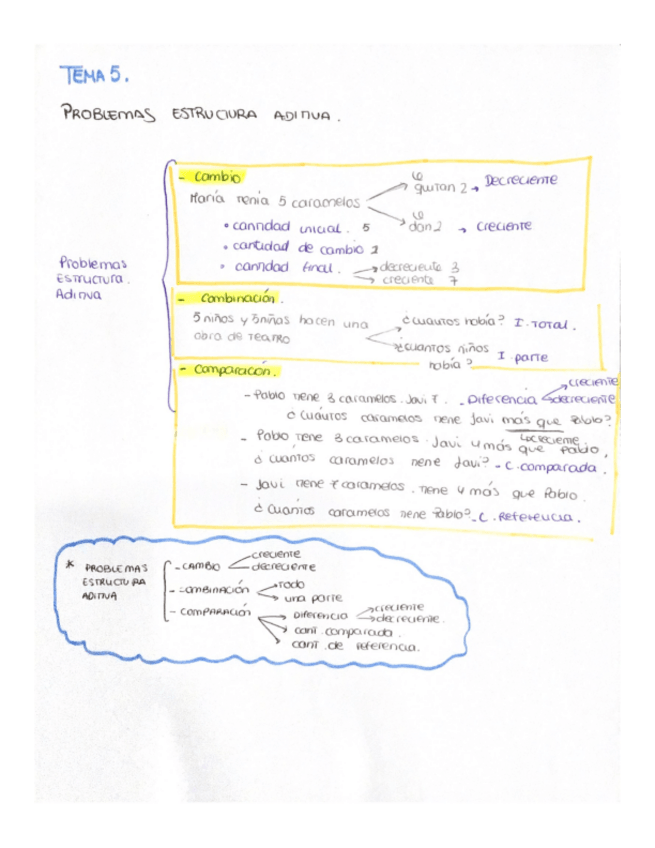 TEMA 5.
PROBLEMAS ESTRUCTURA ADITIVA.
Problemas
Estructura.
Aditiva
- Cambio
María tenía 5 caramelos
le
quitan 2 → Decreciente
le
dan 2 → creciente
• cantidad inicial. 5
• cantidad de cambio 2
• cantidad final. → decreciente 3
→ creciente 7
- Combinación.
5 niños y 3 niñas hacen una
obra de teatro
¿cuántos había? I. Total.
¿cuántos niños
había? I parte
- Comparación.
- Pablo tiene 3 caramelos. Javi 7. - Diferencia
creciente
decreciente
¿Cuántos caramelos tiene Javi más que Pablo?
creciente
- Pablo tiene 3 caramelos. Javi 4 más que Pablo,
¿cuantos caramelos tiene Javi? - C. comparada.
- Javi tiene 7 caramelos. tiene 4 más que Pablo.
¿Cuantos caramelos tiene Pablo? - C. Referencia.
* PROBLEMAS
ESTRUCTURA
ADITIVA
- CAMBIO
creciente
decreciente
- COMBINACIÓN
→ Todo
→ una parte
- COMPARACIÓN
→ Diferencia
→ creciente
→ decreciente.
cant. comparada.
cant. de referencia.